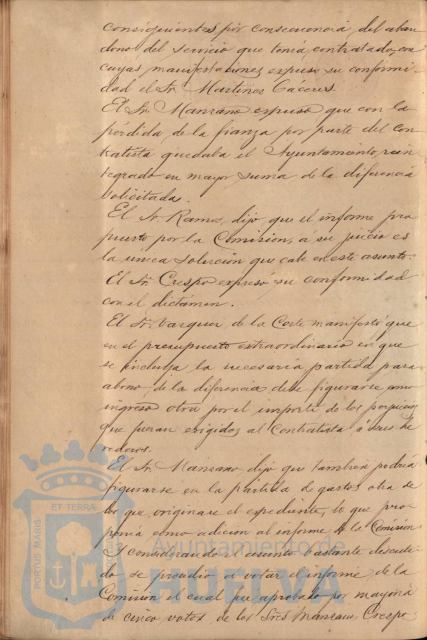 consiguientes por consecuencia del aban
dono del servicio que tenia contratado, con
cuyas manifestaciones expuso su conformi
dad el Sr. Martinez Cáceres.
El Sr. Manzano expuso que con la
pérdida de la fianza por parte del con
tratista quedaba el Ayuntamiento rein
tegrado en mayor suma de la diferencia
solicitada.
El Sr. Ramos, dijo que el informe pro
puesto por la Comision, á su juicio es
la unica solucion que cabe en este asunto.
El Sr. Crespo expresó su conformidad
con el dictamen.
El Sr. Vazquez de la Corte manifestó que
en el presupuesto extraordinario en que
se incluya la necesaria partida para
abono de la diferencia debe figurarse como
ingreso otra por el importe de los perjuicios
que fueran exigidos al Contratista ó sus he
rederos.
El Sr. Manzano dijo que tambien podria
figurarse en la partida de gastos otra de
los que originare el expediente, lo que pro
ponia como adicion al informe de la Comision
Y considerando el asunto bastante discuti
do se procedió a votar el informe de la
Comision el cual fue aprobado por mayoria
de cinco votos de los Sres Manzano, Crespo
PORTUS MARIS ET TERRA
Ayuntamiento de
HUELVA